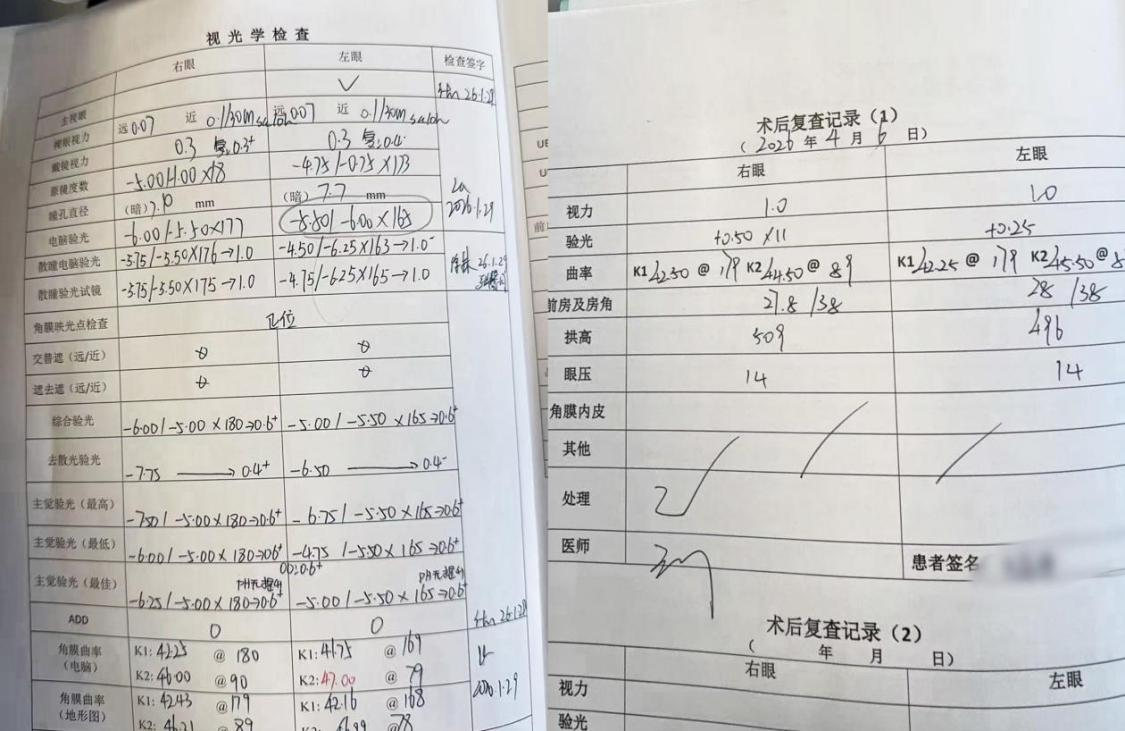 视光学检查
右眼 左眼 检查签字
主视眼 √
裸眼视力 远0.07 近 0.1/30cm 远0.07 近 0.1/30cm
戴镜视力 0.3 0.3⁺ 0.3
原镜度数 -5.00/-1.00×18 -4.75/-0.75×173
瞳孔直径 (暗) mm (暗) 7.7 mm
2026.1.29
电脑验光 -6.00/-5.50×177 -5.50/-6.00×165
散瞳电脑验光 -5.75/-5.50×176→1.0 -4.50/-6.25×163→1.0⁻
26.1.29
散瞳验光试镜 -5.75/-5.50×175→1.0 -4.75/-6.25×165→1.0
角膜映光点检查 正位
交替遮(远/近)
遮去遮(远/近)
综合验光 -6.00/-5.00×180→0.6⁺ -5.00/-5.50×165→0.6⁺
去散光验光 -7.75 → 0.4⁺ -6.50 → 0.4⁻
主觉验光(最高) -7.50/-5.00×180→0.6⁺ -6.75/-5.50×165→0.6⁺
主觉验光(最低) -6.00/-5.00×180→0.6⁺ -4.75/-5.50×165→0.6⁺
OU:0.6⁺
主觉验光(最佳) PH无提升 PH无提升
-6.25/-5.00×180→0.6⁺ -5.00/-5.50×165→0.6⁺
ADD 0 0
角膜曲率(电脑) K1:42.25 @ 180 K1:41.75 @ 169
K2:46.00 @ 90 K2:47.00 @ 79
2026.1.29
角膜曲率(地形图) K1:42.43 @ 179 K1:42.16 @ 168
K2: 46.21 @ 89 @ 78
术后复查记录(1)
(2026年4月6日)
右眼 左眼
视力 1.0 1.0
验光 +0.50×11 +0.25
曲率 K1 42.50 @ 179 K2 44.50 @ 89 K1 42.25 @ 179 K2 45.50 @
前房及房角 27.8/38 28/38
拱高 509 496
眼压 14 14
角膜内皮
其他
处理
医师 患者签名
术后复查记录(2)
( 年 月 日)
右眼 左眼
视力
验光